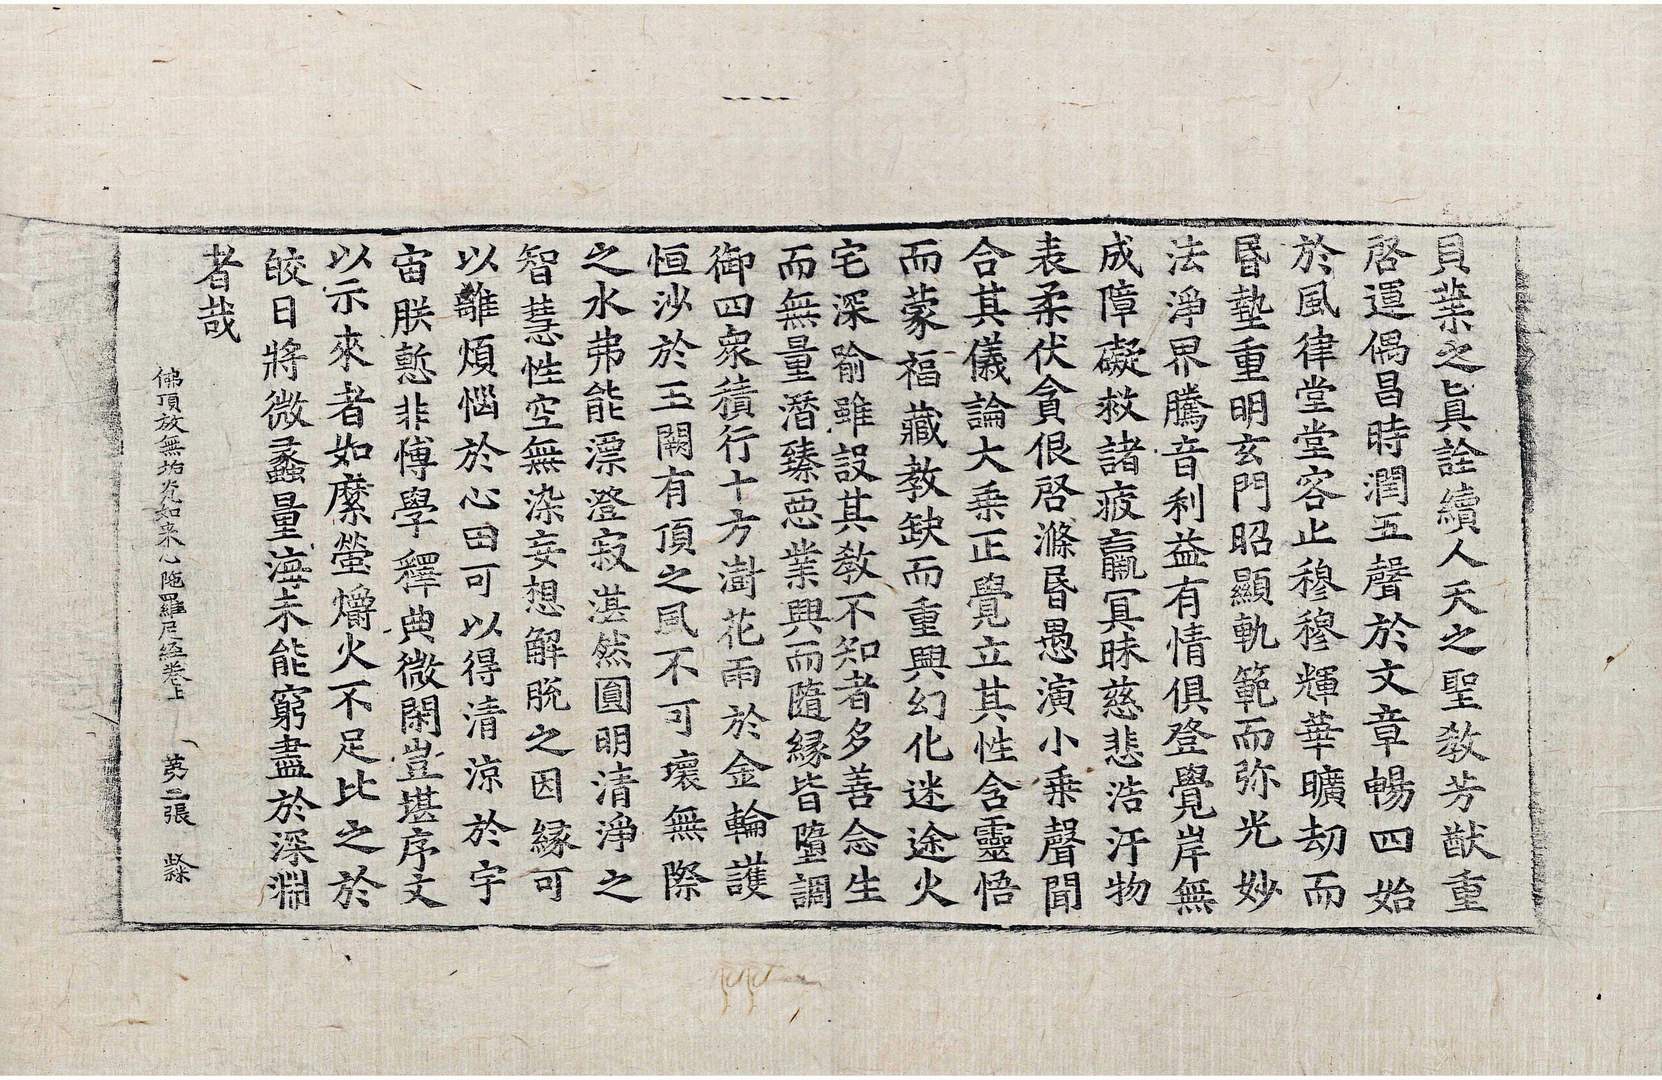 貝葉之眞詮續人天之聖教芳猷重
啓運偶昌時潤五聲於文章暢四始
於風律堂堂容止穆穆輝華曠劫而
昏墊重明玄門昭顯軌範而弥光妙
法淨界騰音利益有情俱登覺岸無
成障礙救諸疲羸冥昧慈悲浩汗物
表柔伏貪佷啓滌昏愚演小乗聲聞
合其儀論大乗正覺立其性含靈悟
而蒙福藏教缺而重興幻化迷途火
宅深喻雖設其教不知者多善念生
而無量潛臻惡業興而隨緣皆墮調
御四衆積行十方澍花雨於金輪護
恒沙於玉闕有頂之風不可壞無際
之水弗能漂澄寂湛然圓明清淨之
智慧性空無染妄想解脫之因縁可
以離煩惱於心田可以得清涼於宇
宙朕慙非博學釋典微閑豈堪序文
以示來者如縻螢爝火不足比之於
皎日將微蠡量海未能窮盡於深淵
者哉
佛頂放無垢光如来心陁羅尼經卷上 第二張